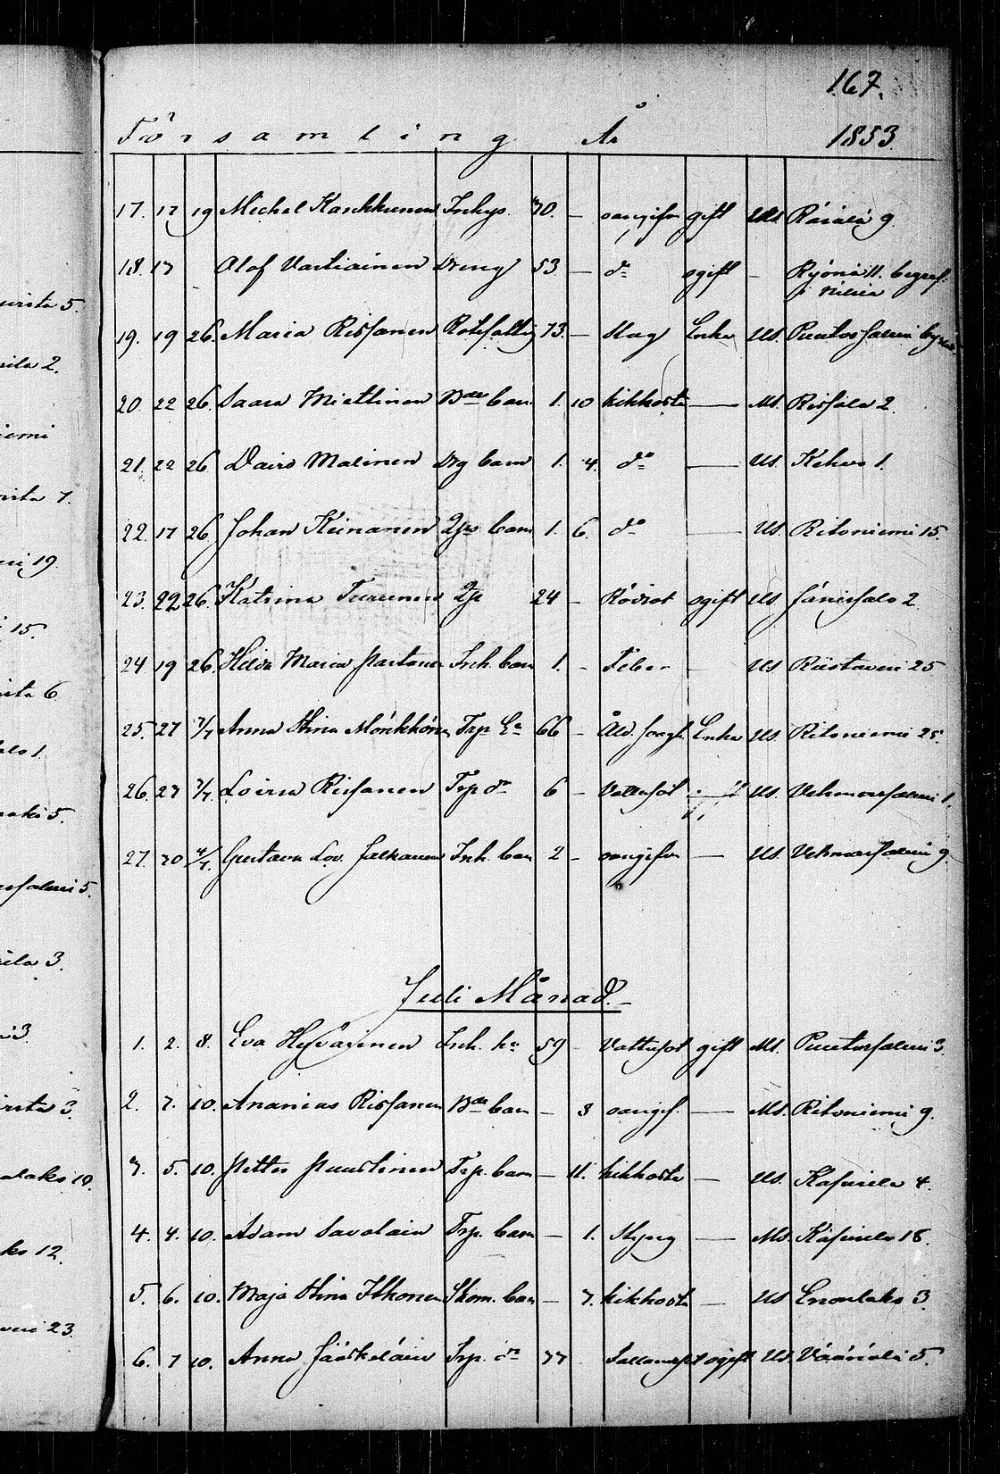 167.
Församling År 1853.
17. 17 19 Michel Karhkunen Inhys. 70. — oangifn gift Us. Räsälä 9
18. 17 Olof Vartiainen Dreng 53 — do ogift — 11. begraf.
i Nilsiä
19. 19 26. Maria Rissanen Rotefattig 73. — Slag Enka Us. Puutosalmi
20. 22 26. Saara Miettinen Bde barn 1. 10 kikhosta — Ms. Rissala 2.
21. 22 26 David Malinen Drg barn 1. 4. do — Us. Kehvo 1.
22. 17 26. Johan Keinänen barn 1. 6. do — Us. Ritoniemi 15.
23. 22 26. Katrina Turunen 24 — Rödsot ogift Us. Jänissalo 2.
24 19 26. Helda Maria Partanen Inh. barn 1. — Feber — Us Riistaveri 25
25. 27 3/7 Anna Stina Mönkkönen Trp Ea 66 — Åld. svagh. Enka Us. Ritoniemi 25.
26. 27 3/7. Lovisa Rissanen Trp dr 6 — Vattusot — Us. Vehmassalmi 1.
27. 30 4/7. Gustava Lov. Jalkanen Inh. barn 2 — oangifn — Us. Vehmassalmi 9
Juli Månad.
1. 2. 8. Eva Hyvärinen Inh. hu 59 — Vattusot gift Ms. Puutosalmi 3.
2. 7. 10. Ananias Rissanen Bde barn — 3 oangif. — Ms. Ritoniemi 9.
3. 5. 10. Petter Puustinen Trp. barn — 11. kikhosta — Us. Kasurila 4.
4. 4. 10. Adam Savolain Trp. barn — 1. Slag — Ms. Kasurila 18.
5. 6. 10. Maja Stina Itkonen Skom. barn — 7. kikhosta — Us Enonlaks 3.
6. 7 10. Anna Jääskeläin Trp. dr 37 ogift Us. Väänälä 5.
uista 5.
rila 2.
iemi
rista 7.
mi 19.
15.
ista 6
alo 1.
aks 5.
nsalmi 5.
rila 3.
i 3.
irsta 3.
nlaks 10.
ks 12.
veri 23.